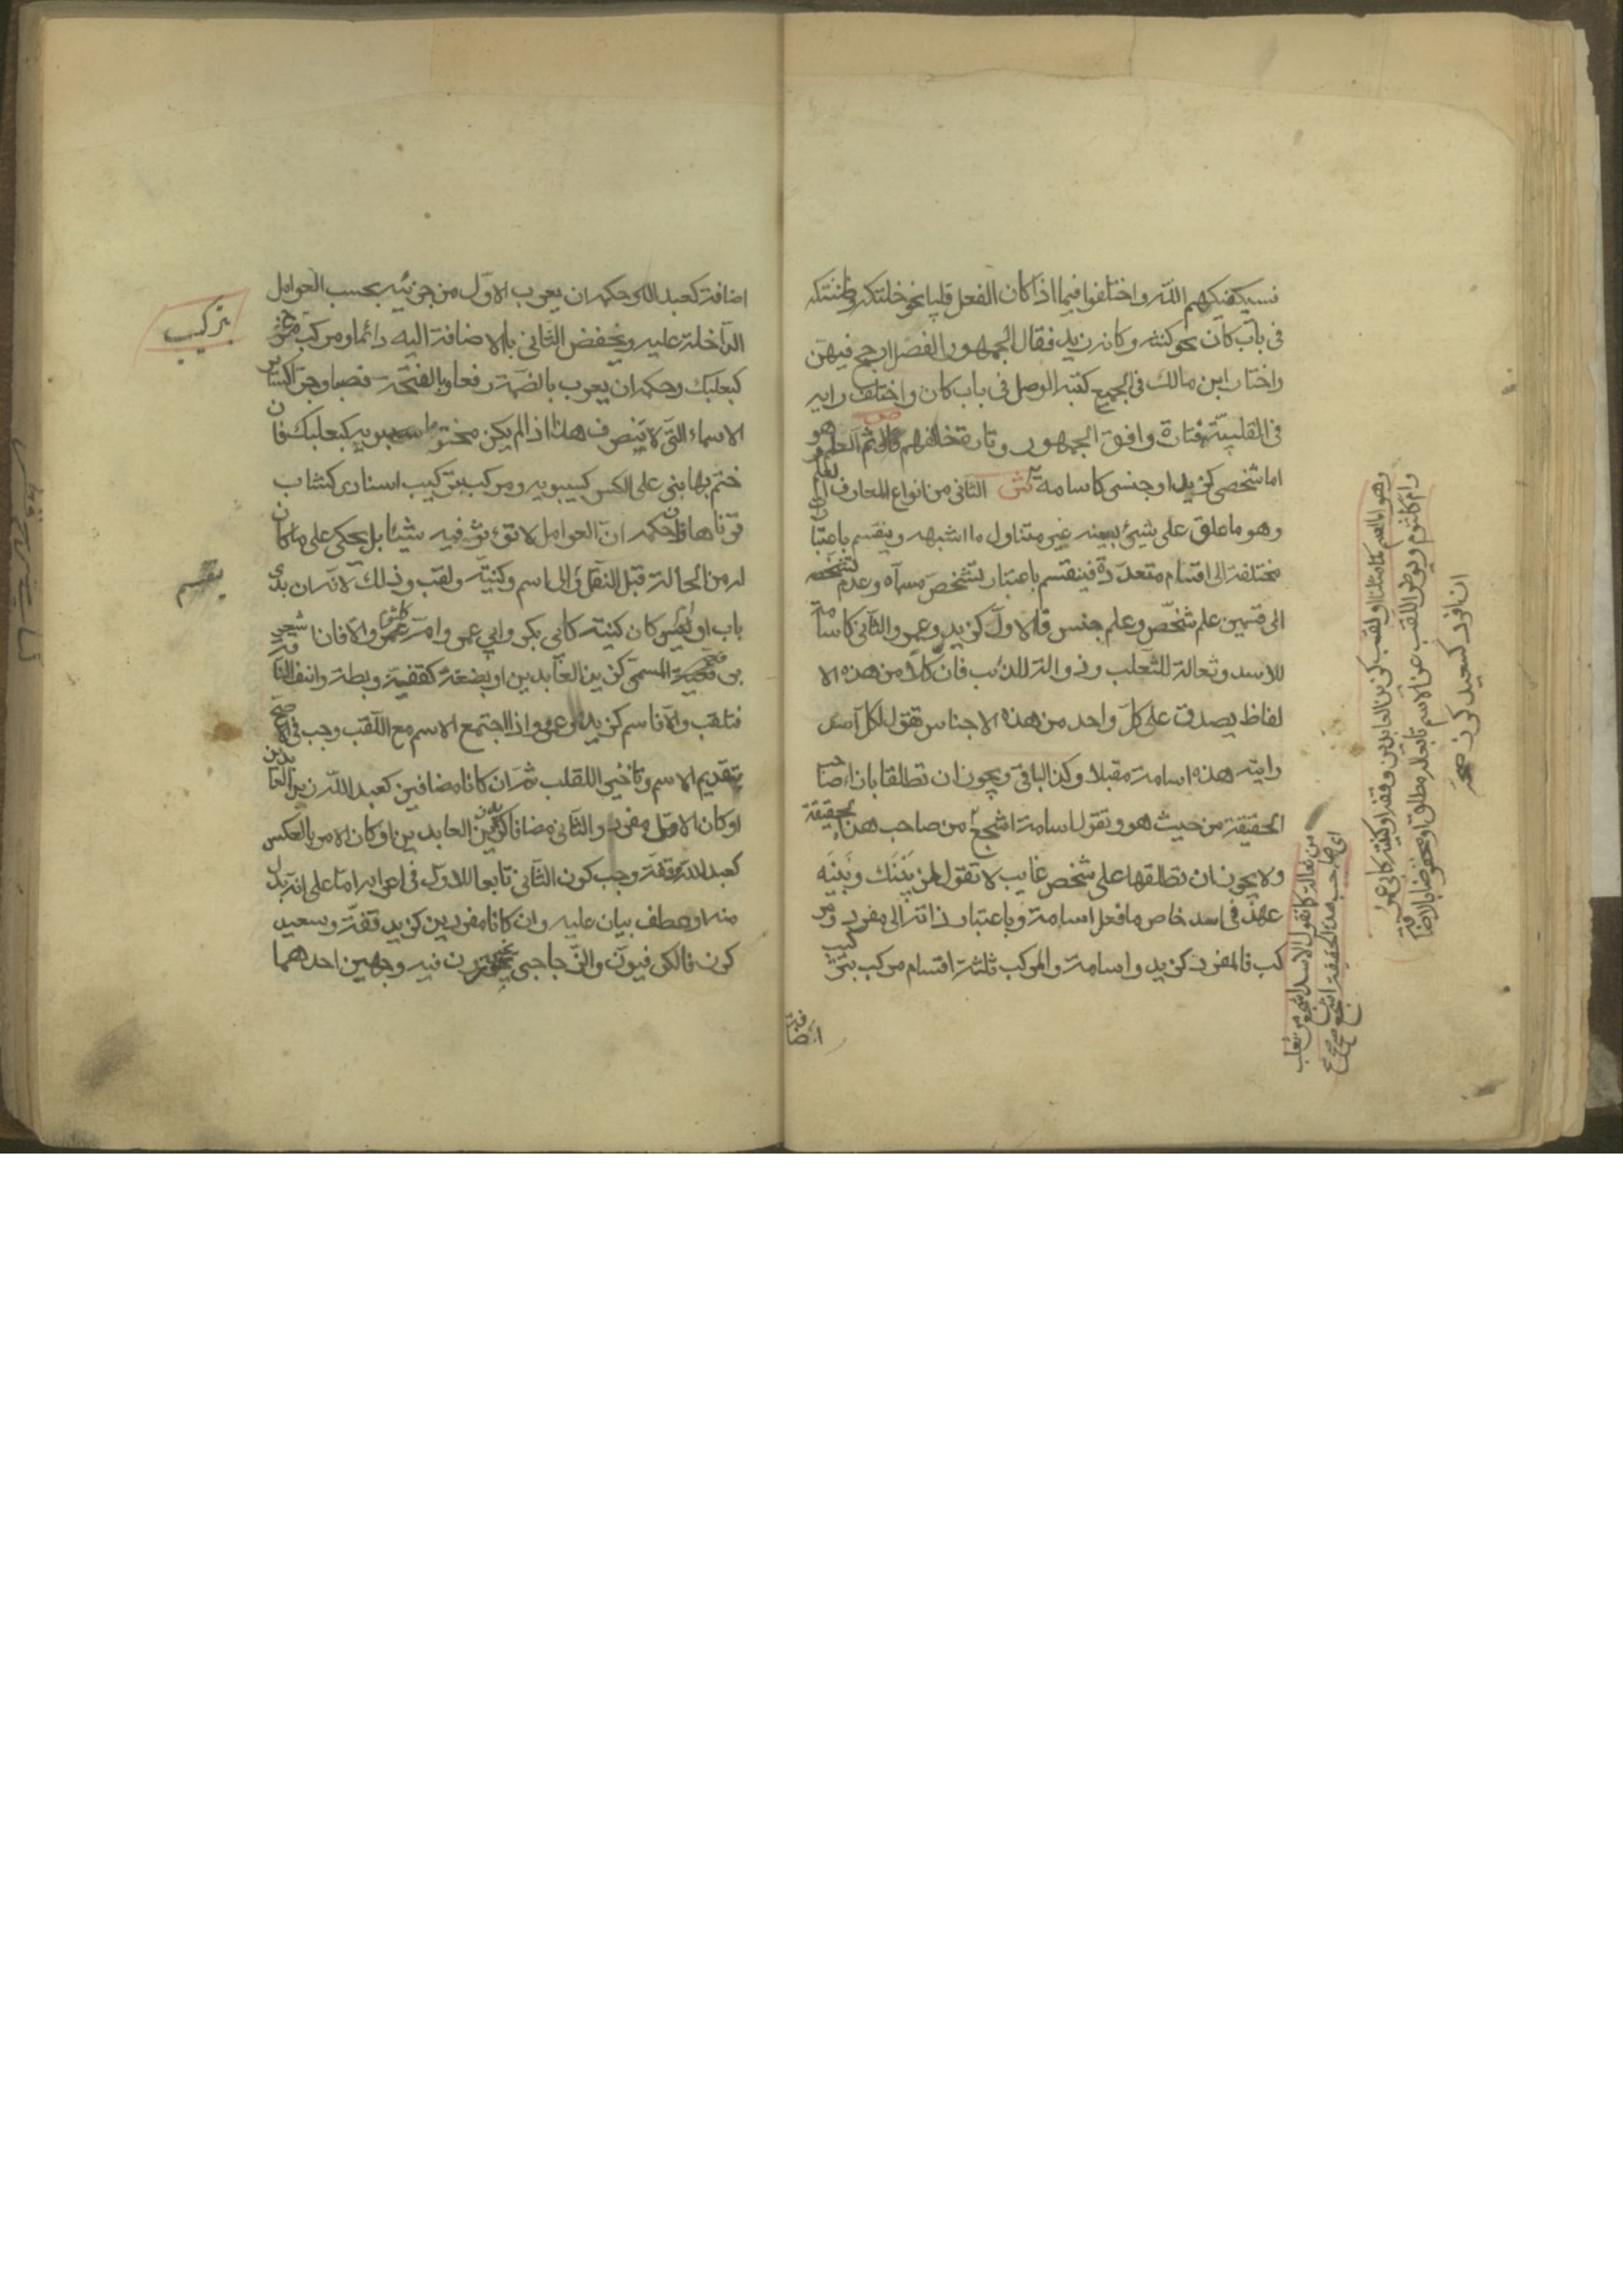 فسيكفيكهم الله واختلفوا فيما اذا كان الفعل قلبيا نحو خلتكه وظننتكه
فى باب كان نحو كنته وكانه زيد فقال الجمهور الفصل ارجح فيهن
واختار ابن مالك فى الجميع كتبه الوصل فى باب كان واختلف رايه
فى القلبية فتارة وافق الجمهور وتارة خالفهم ص ثم العلم وهو
اما شخصى كزيد او جنسى كاسامة ش الثانى من انواع المعارف العلم
وهو ما علق على شيئ بعينه غير متناول ما اشبهه وينقسم باعتبارات
مختلفة الى اقسام متعددة فينقسم باعتبار تشخص مسماه وعدم تشخصه
الى قسمين علم شخص وعلم جنس فالاول كزيد وعمرو والثانى كاسامة
للاسد وثعالة للثعلب وذوالة للذئب فان كلا من هذه الا
لفاظ يصدق على كل واحد من هذه الاجناس تقول لكل اسد
رايته هذه اسامة مقبلا وكذا الباقى ويجوز ان تطلقا بازاء صاحب
الحقيقة من حيث هو وتقول اسامة اشجع من صاحب هذه الحقيقة
ولا يجوز ان تطلقها على شخص غايب لا تقول لمن بينك وبينه
عهد فى اسد خاص ما فعل اسامة وباعتبار ذاته الى مفرد ومر
كب فالمفرد كزيد واسامة والمركب ثلثة اقسام مركب تركيب
اضافة
وهو اما اسم كما مثلنا او لقب كزين العابدين وقفة او كنية كابى عمرو
وام كلثوم ويؤخر اللقب عن الاسم تابعا له مطلقا او مخفوضا بالاضافة
ان افردا كسعيد كرز
من ثعالة كما تقول الاسد اشجع من ثعلب
اى صاحب هذه الحقيقة اشجع
اضافة كعبد الله وحكمه ان يعرب الاول من جزئيه بحسب العوامل
الداخلة عليه ويخفض الثانى بالاضافة اليه دائما ومركب مزج
تركيب
كبعلبك وحكمه ان يعرب بالضمة رفعا وبالفتحة نصبا وجرا كساير
الاسماء التى لا ينصرف هذا اذا لم يكن مختوما بويه كبعلبك فان
ختم بها بنى على الكسر كسيبويه ومركب تركيب اسناد كشاب
قرناها وحكمه ان العوامل لا تؤثر فيه شيئا بل يحكى على ما كان
له من الحالة قبل النقل الى اسم وكنية ولقب وذلك لانه ان بدئ
ينقسم
باب او ام كان كنية كابى بكر وابى عمرو وام عمرو والا فان
المسمى كزين العابدين او بضعة كقفة وبطة وانف الناقة
فلقب والا فاسم كزيد وعمرو واذا اجتمع الاسم مع اللقب وجب فى الافصح
تقديم الاسم وتاخير اللقلب ثم ان كانا مضافين كعبد الله زين العابدين
او كان الاول مفرد والثانى مضافا كزيد زين العابدين او كان الامر بالعكس
كعبد الله قفة وجب كون الثانى تابعا للاول فى اعرابه اما على انه بدل
منه او عطف بيان عليه وان كانا مفردين كزيد قفة وسعيد
كرز فالكوفيون والزجاجى يجوزون فيه وجهين احدهما